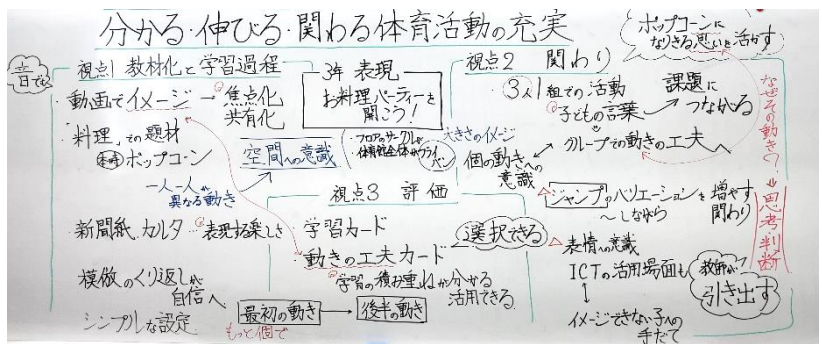 分かる・伸びる・関わる体育活動の充実
ポップコーンに
なりきる思いを活かす
視点1 教材化と学習過程
動画でイメージ → 焦点化
共有化
「料理」での題材
ポップコーン
一人一人が
異なる動き
空間への意識
新聞紙、カルタ
表現する楽しさ
模倣のくり返しが
自信へ
シンプルな設定
3年 表現
お料理パーティーを
開こう!
フロアのサークルが
体育館全体がフライパン
大きさのイメージ
視点3 評価
学習カード
動きの工夫カード
選択できる
学習の積み重ねが分かる
活用できる
最初の動き → 後半の動き
もっと個で
視点2 関わり
3人1組での活動
子どもの言葉
課題に
つながる
グループでの動きの工夫へ
個の動きへの
意識
ジャンプのバリエーションを増やす
〜しながら
関わり
表情への意識
ICTの活用場面も
イメージできない子への
手だて
教師が
引き出す
なぜその動き?
⇒思考判断